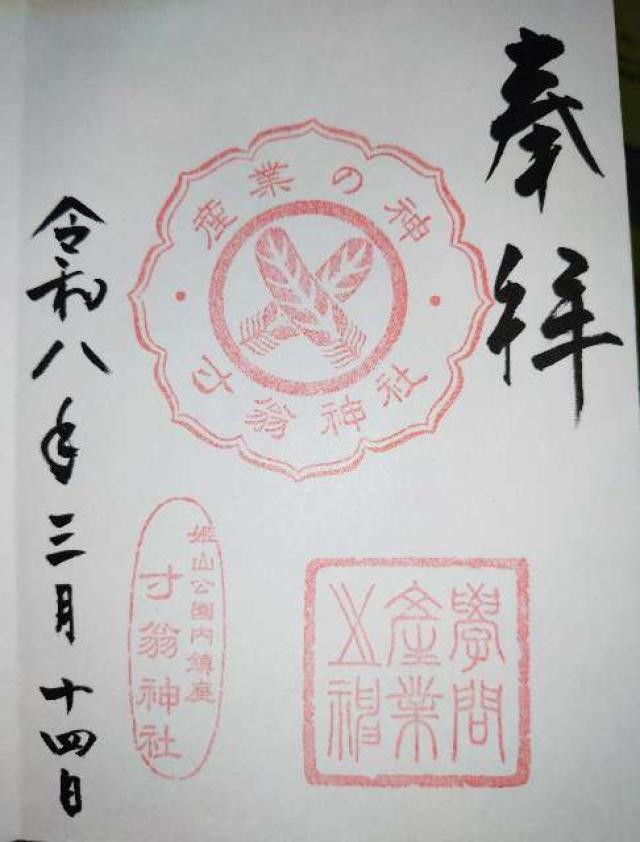 奉拝
産業の神
寸翁神社
學問
産業
神
姫山公園内鎮座
寸翁神社
令和八年三月十四日